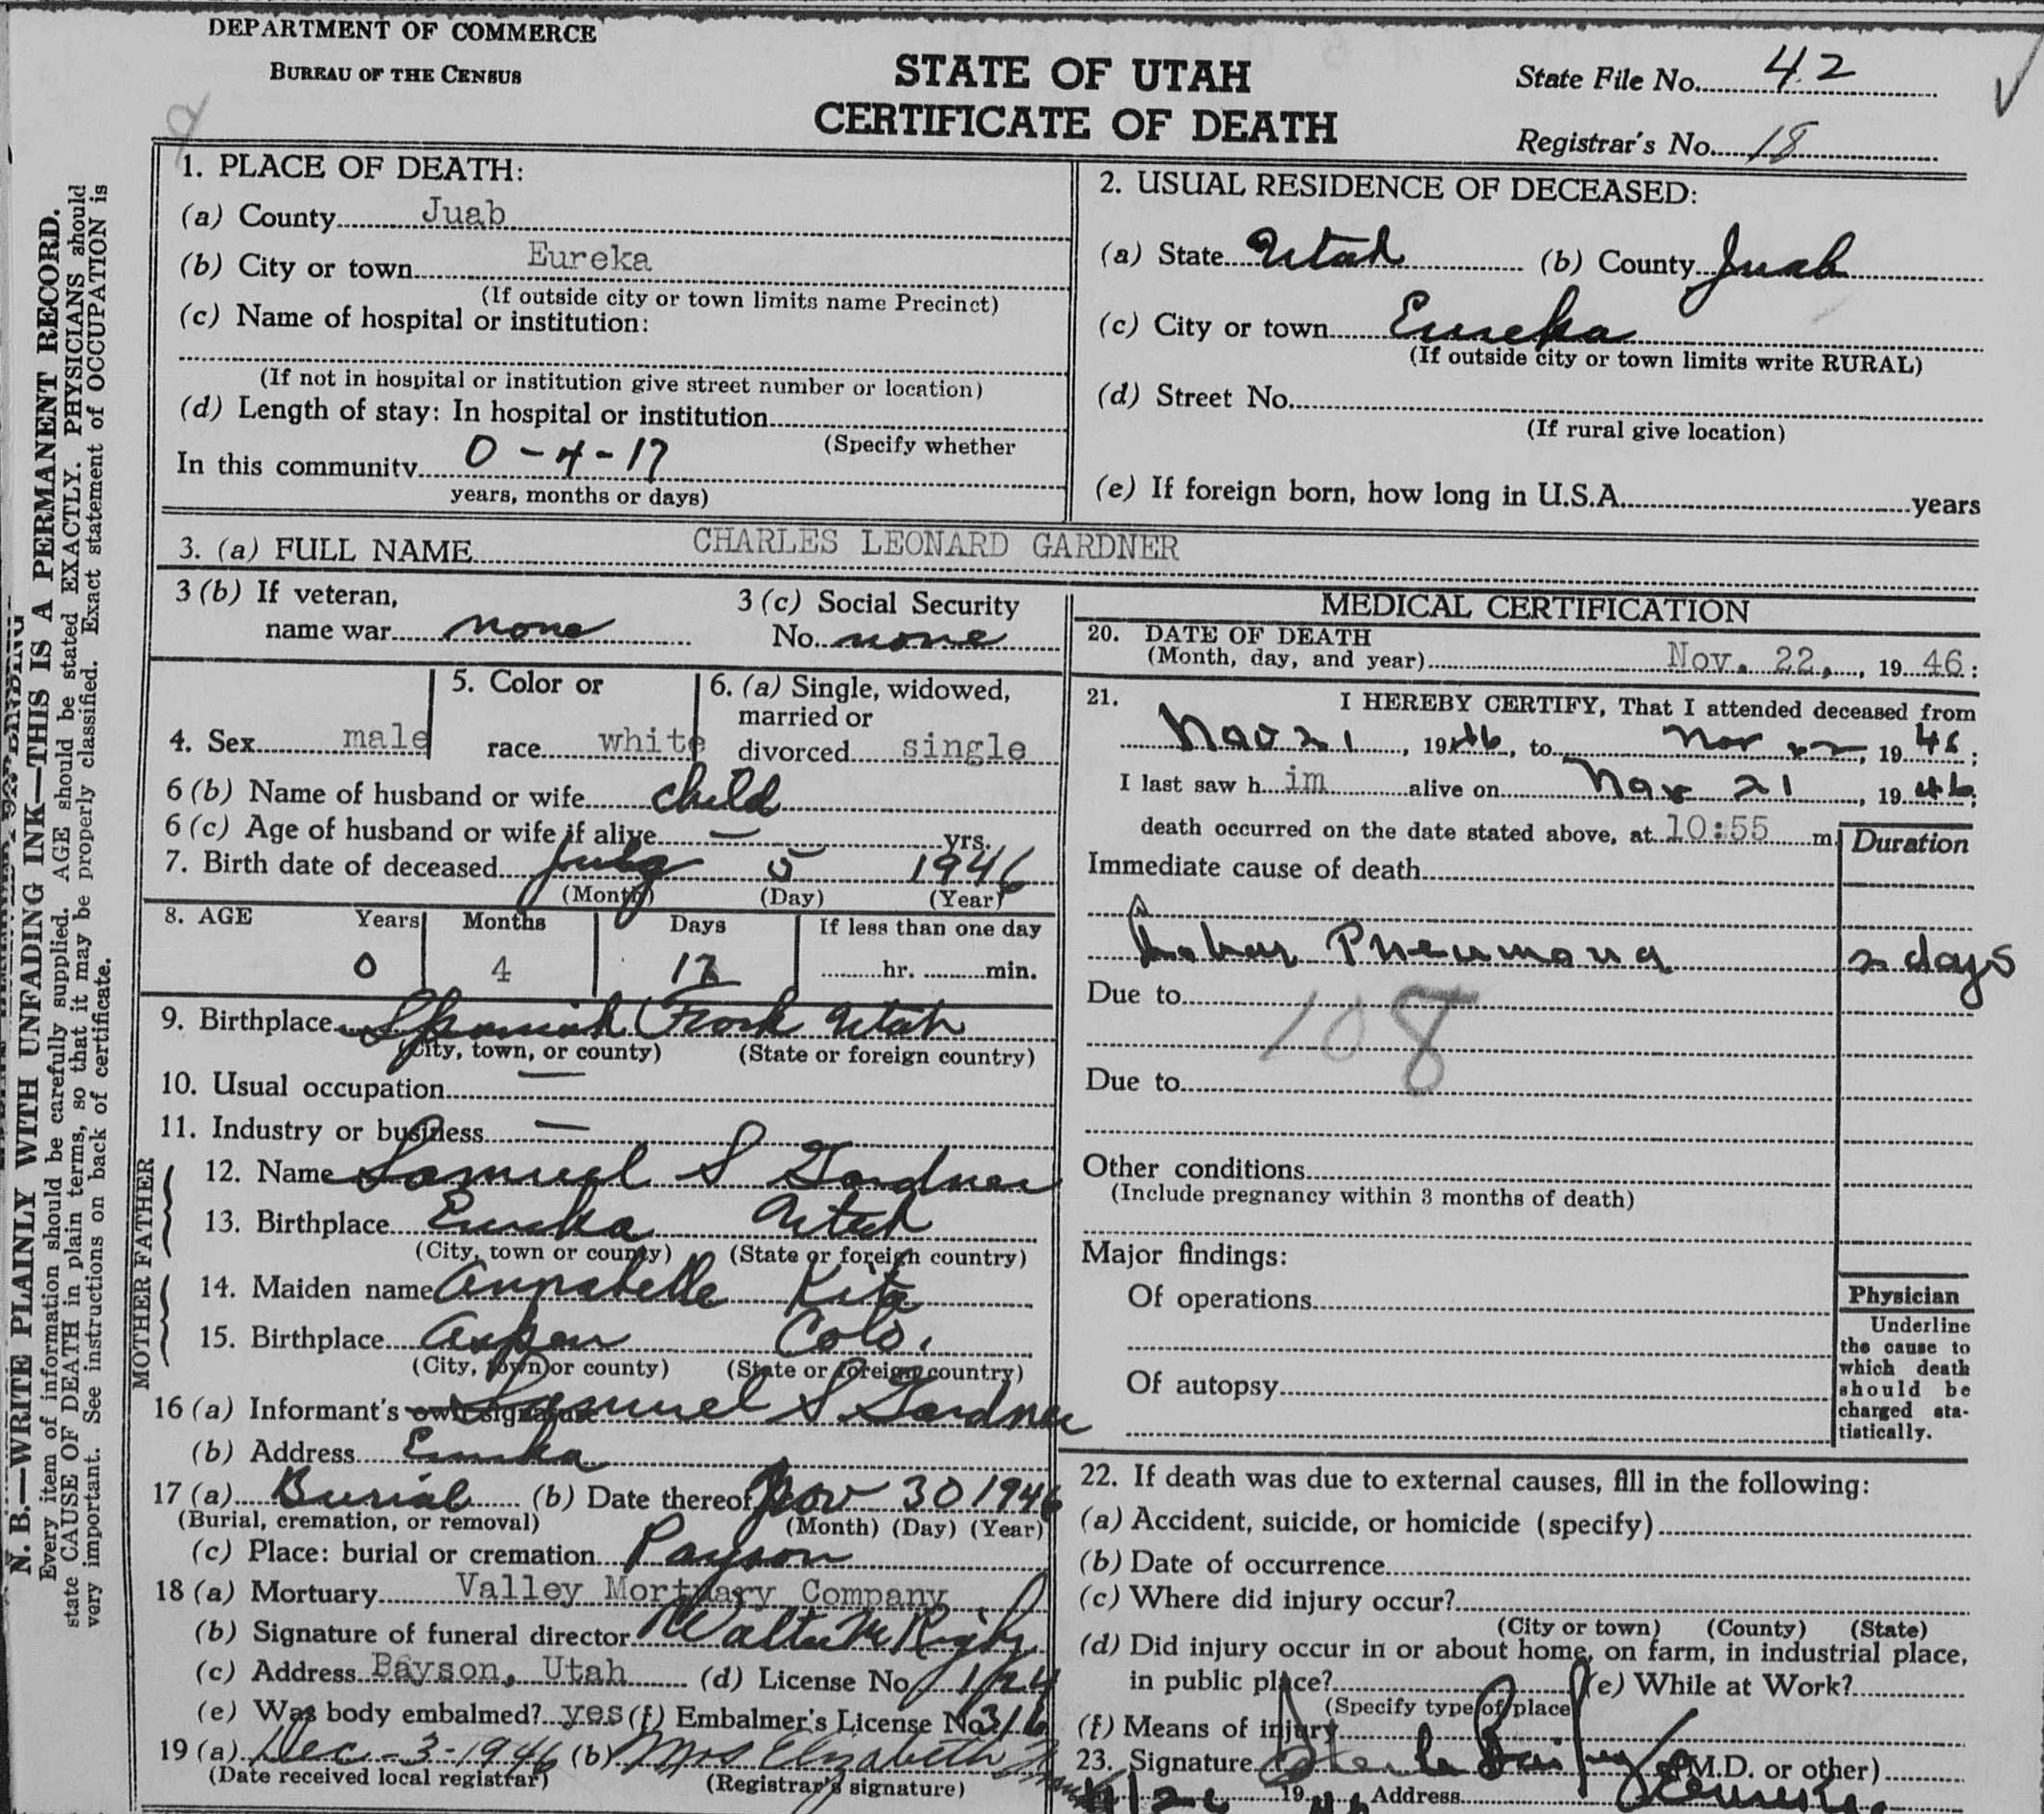 DEPARTMENT OF COMMERCE
BUREAU OF THE CENSUS
STATE OF UTAH
CERTIFICATE OF DEATH
State File No. 42
Registrar's No. 18
N. B.—WRITE PLAINLY WITH UNFADING INK—THIS IS A PERMANENT RECORD.
Every item of information should be carefully supplied. AGE should be stated EXACTLY. PHYSICIANS should
state CAUSE OF DEATH in plain terms, so that it may be properly classified. Exact statement of OCCUPATION is
very important. See instructions on back of certificate.
1. PLACE OF DEATH:
(a) County Juab
(b) City or town Eureka
(If outside city or town limits name Precinct)
(c) Name of hospital or institution:
(If not in hospital or institution give street number or location)
(d) Length of stay: In hospital or institution
(Specify whether
In this community 0-4-17
years, months or days)
2. USUAL RESIDENCE OF DECEASED:
(a) State Utah (b) County Juab
(c) City or town Eureka
(If outside city or town limits write RURAL)
(d) Street No.
(If rural give location)
(e) If foreign born, how long in U.S.A. years
3. (a) FULL NAME CHARLES LEONARD GARDNER
3 (b) If veteran,
name war none
3 (c) Social Security
No. none
4. Sex male
5. Color or
race white
6. (a) Single, widowed,
married or
divorced single
6 (b) Name of husband or wife child
6 (c) Age of husband or wife if alive — yrs.
7. Birth date of deceased July 5 1946
(Month) (Day) (Year)
8. AGE Years Months Days If less than one day
0 4 17 hr. min.
9. Birthplace Spanish Fork Utah
(City, town, or county) (State or foreign country)
10. Usual occupation —
11. Industry or business —
FATHER
12. Name Samuel S Gardner
13. Birthplace Eureka Utah
(City, town or county) (State or foreign country)
MOTHER
14. Maiden name Annabelle Kite
15. Birthplace Aspen Colo.
(City, town or county) (State or foreign country)
16 (a) Informant's own signature Samuel S Gardner
(b) Address Eureka
17 (a) Burial (b) Date thereof Nov 30 1946
(Burial, cremation, or removal) (Month) (Day) (Year)
(c) Place: burial or cremation Payson
18 (a) Mortuary Valley Mortuary Company
(b) Signature of funeral director Walter
(c) Address Payson, Utah (d) License No. 124
(e) Was body embalmed? yes (f) Embalmer's License No. 316
19 (a) Dec-3-1946 (b) Mrs Elizabeth
(Date received local registrar) (Registrar's signature)
MEDICAL CERTIFICATION
20. DATE OF DEATH
(Month, day, and year) Nov. 22, , 19 46 :
21. I HEREBY CERTIFY, That I attended deceased from
Nov 21 , 1946, to Nov 22, 19 46 ;
I last saw h im alive on Nov 21 , 19 46 ;
death occurred on the date stated above, at 10:55 m.
Duration
Immediate cause of death
Lobar Pneumona 2 days
Due to 108
Due to
Other conditions
(Include pregnancy within 3 months of death)
Major findings:
Of operations
Of autopsy
Physician
Underline
the cause to
which death
should be
charged sta-
tistically.
22. If death was due to external causes, fill in the following:
(a) Accident, suicide, or homicide (specify)
(b) Date of occurrence
(c) Where did injury occur?
(City or town) (County) (State)
(d) Did injury occur in or about home, on farm, in industrial place,
in public place? (e) While at Work?
(Specify type of place)
(f) Means of injury
23. Signature Steele Bailey (M.D. or other)
19 Address Eureka